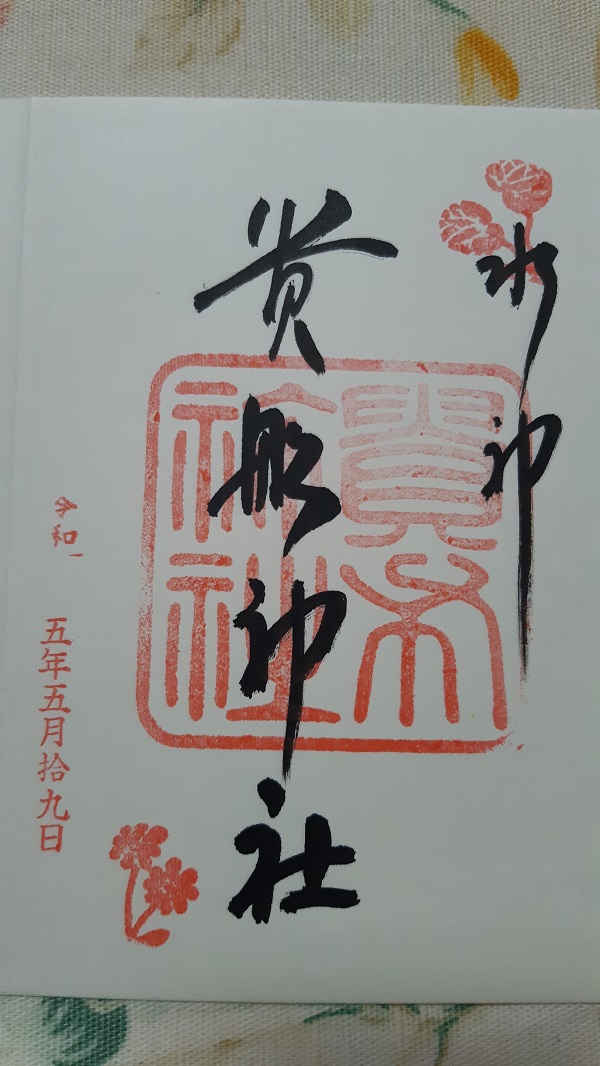 水神
貴船神社
貴布
祢社
令和
五年五月拾九日